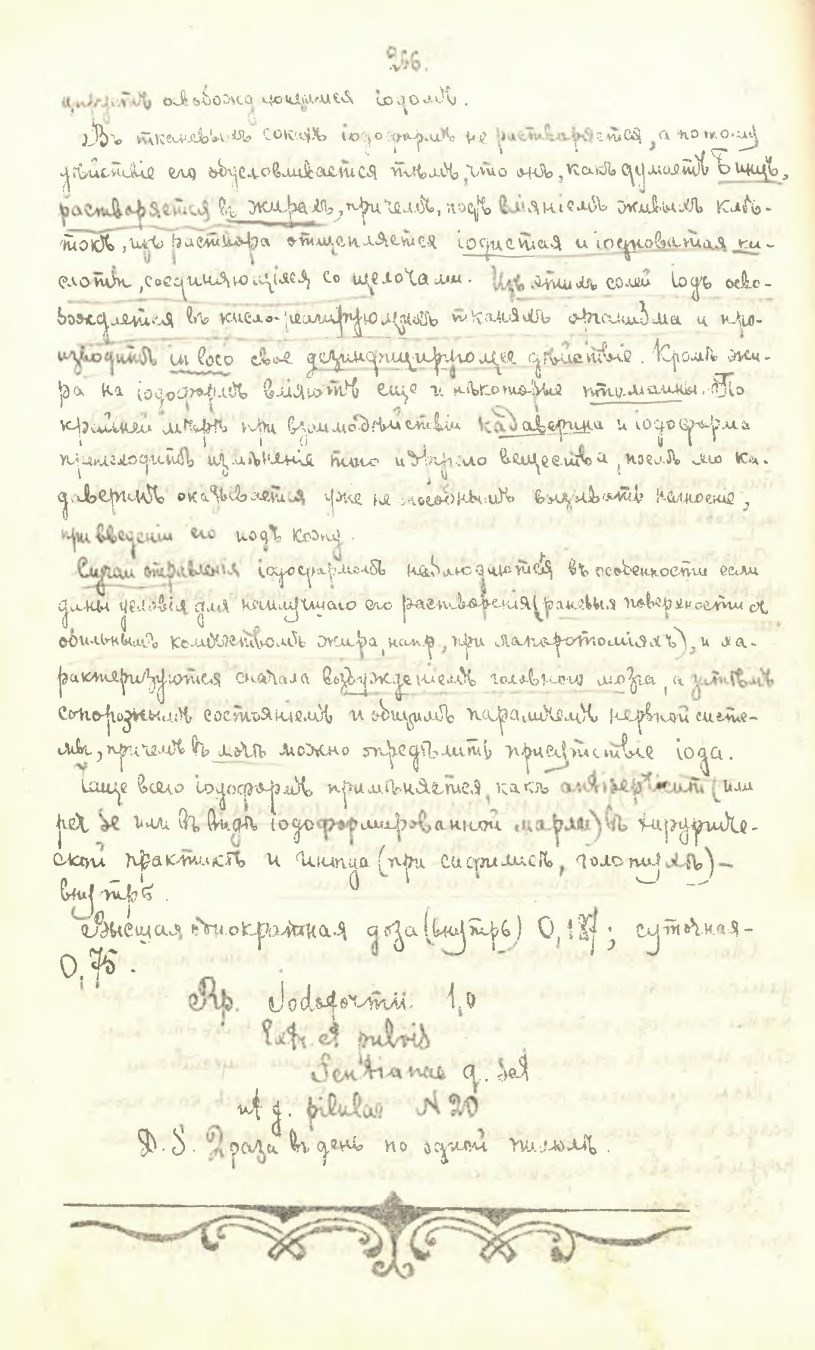 266.
освобождающимся іодомъ.
Въ тканевыхъ сокахъ іодоформъ не растворяется, а потому
дѣйствіе его обусловливается тѣмъ, что онъ, какъ думаетъ Бинцъ,
растворяется въ жирахъ, причемъ, подъ вліяніемъ живыхъ клѣ-
токъ, изъ раствора отщепляется іодистая и іодноватая ки-
слоты, соединяющіяся со щелочами. Изъ этихъ солей іодъ осво-
бождается въ кисло-реагирующихъ тканяхъ организма и про-
изводитъ in loco свое дезинфицирующее дѣйствіе. Кромѣ жи-
ра на іодоформъ вліяютъ еще и нѣкоторые птомаины. По
крайней мѣрѣ при взаимодѣйствіи кадаверина и іодоформа
происходитъ измѣненіе того и другого вещества, послѣ чего ка-
даверинъ оказывается уже не способнымъ вызывать нагноеніе,
при введеніи его подъ кожу.
Случаи отравленія іодоформомъ наблюдаются въ особенности если
даны условія для наилучшаго его растворенія (раневыя поверхности съ
обильнымъ количествомъ жира, напр, при лапаротоміяхъ), и ха-
рактеризуются сначала возбужденіемъ головного мозга, а затѣмъ
сопорознымъ состояніемъ и общимъ параличемъ нервной систе-
мы, причемъ въ мочѣ можно опредѣлить присутствіе іода.
Чаще всего іодоформъ примѣняется, какъ антисептикъ (или
per se или въ видѣ іодоформированной марли) въ хирургиче-
ской практикѣ и иногда (при сифилисѣ, золотухѣ)-
внутрь.
Высшая однократная доза (внутрь) 0,187; суточная-
0,75.
Rp. Jodoformii 1,0
Extr. et pulvis
Gentianae q. sat
ut f. pilulae N 20
D. S. 2 раза въ день по одной пилюлѣ.